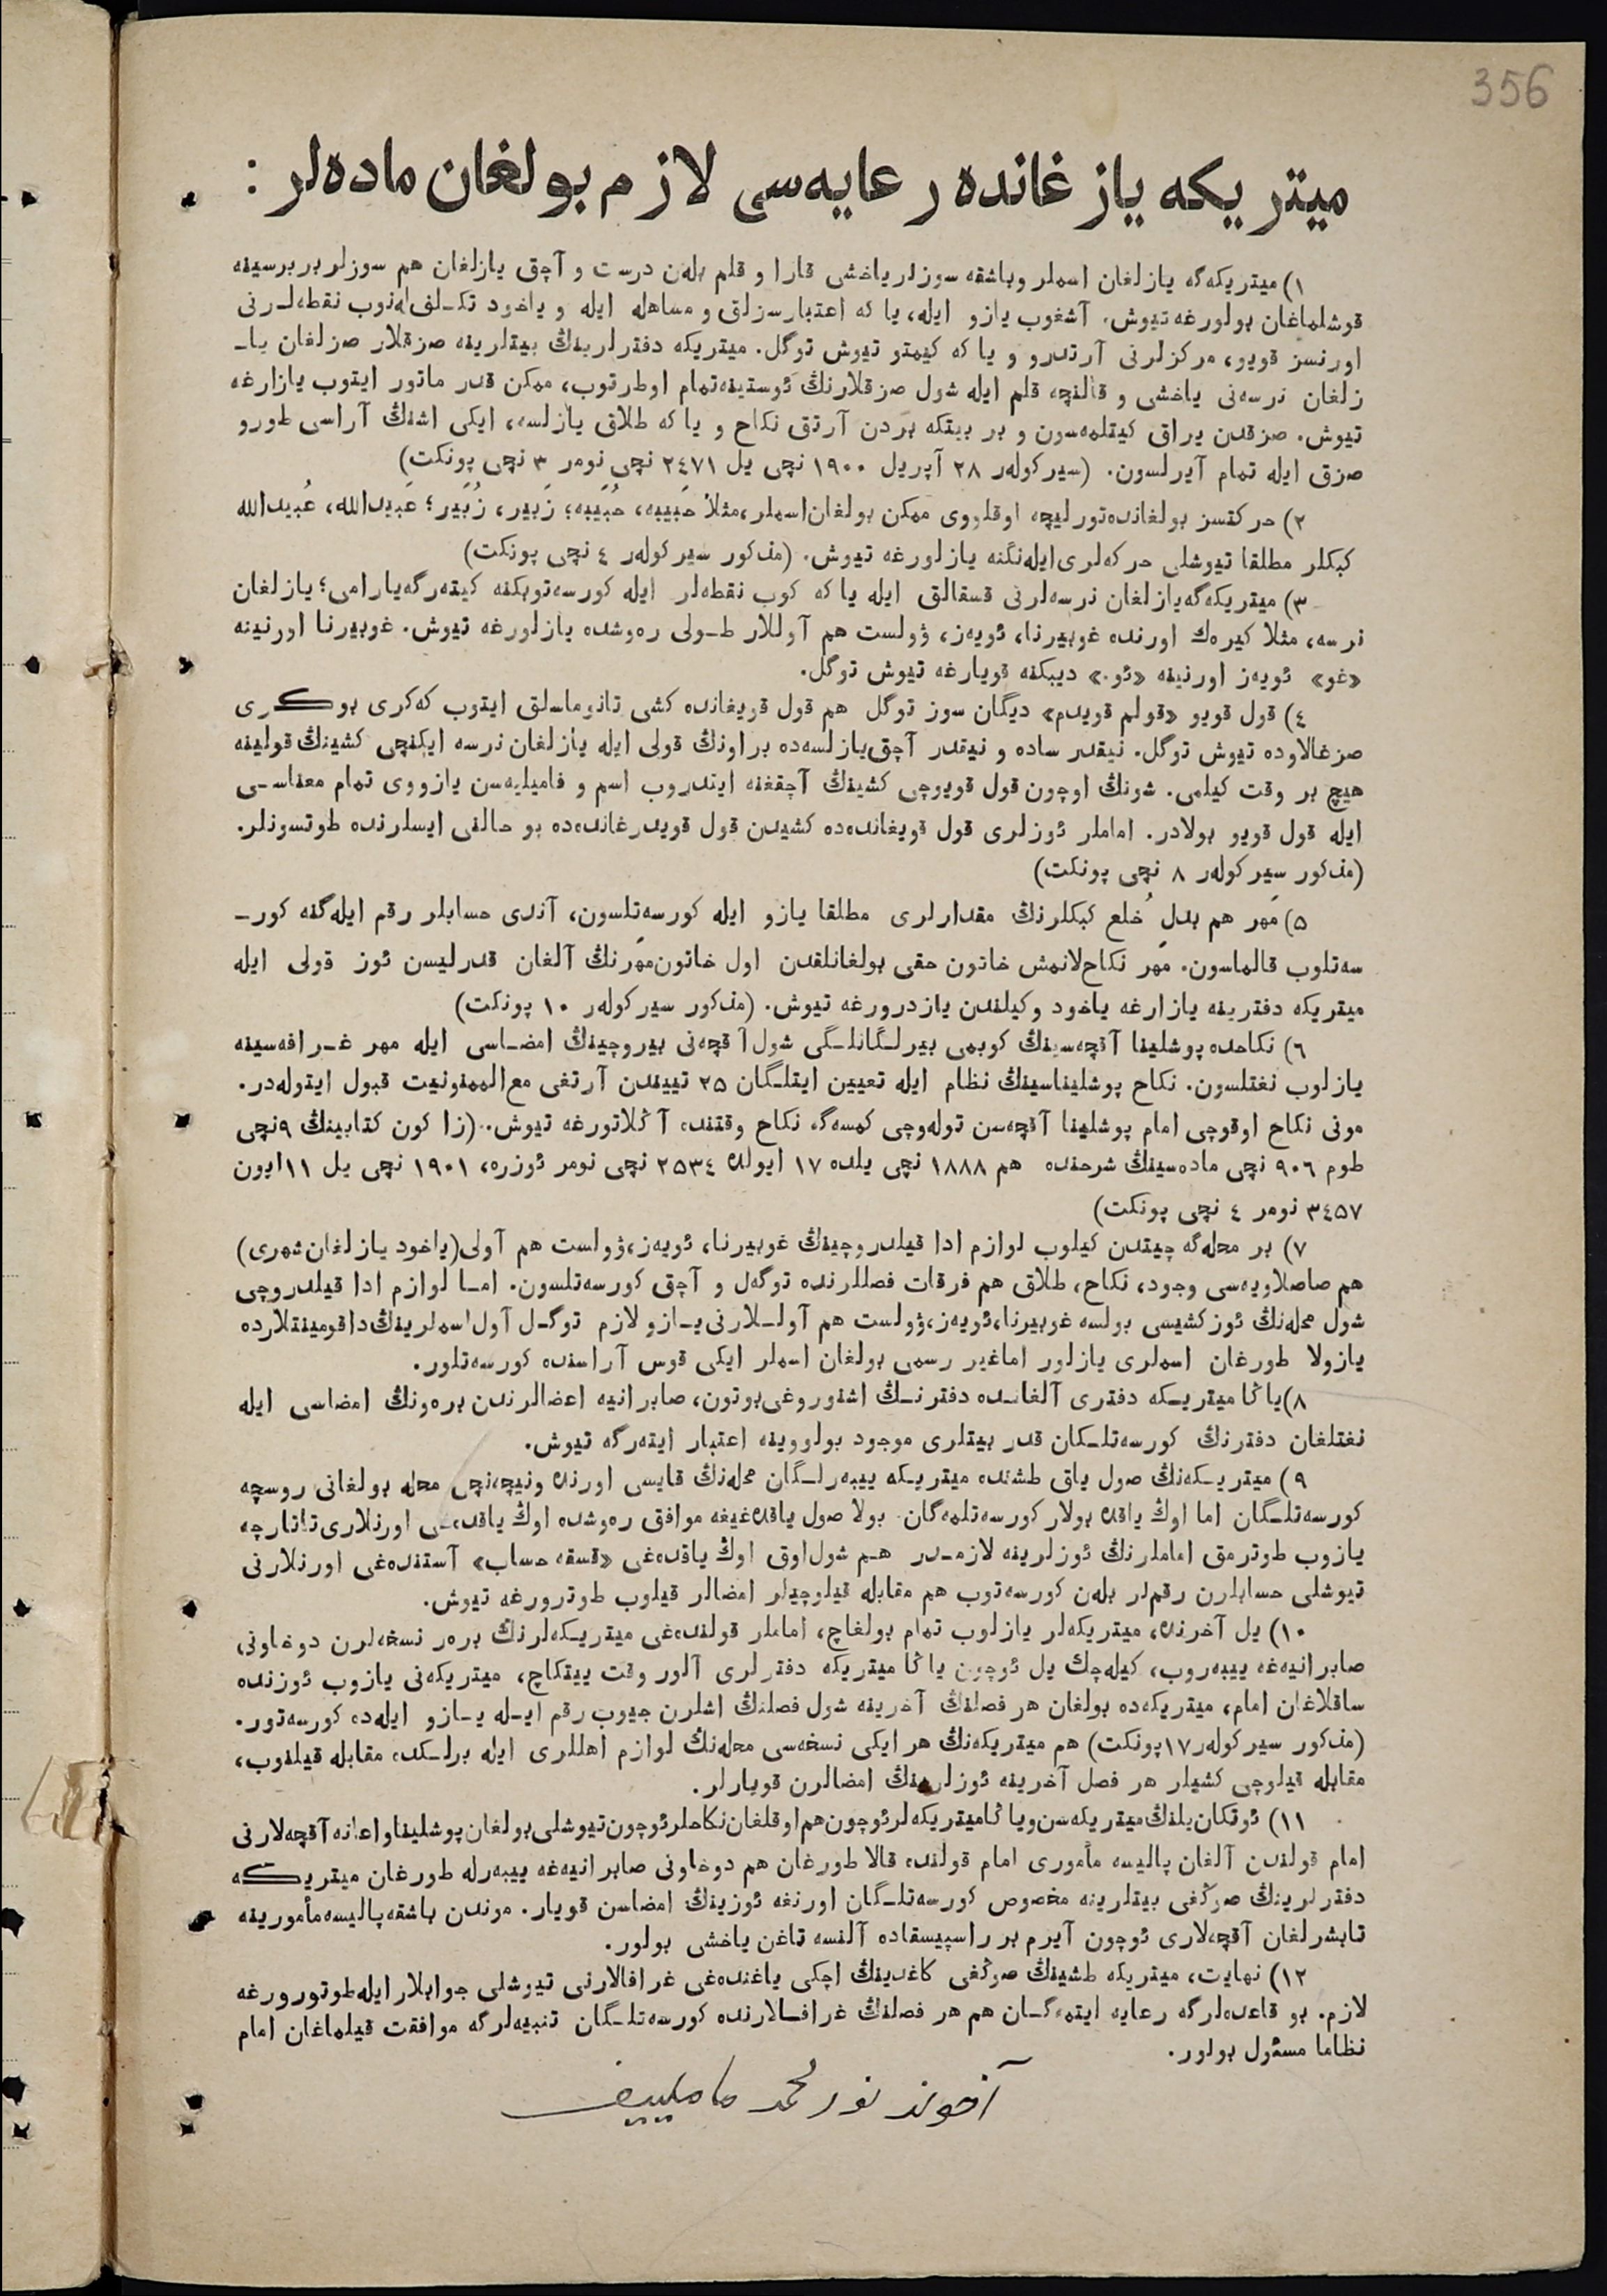 356
میتریکه یازغانده رعایه‌سی لازم بولغان ماده‌لر :
۱) میتریکه‌گه یازلغان اسملر وباشقه سوزلر یاخشی قارا و قلم بله‌ن درست و آچق یازلغان هم سوزلر بربرسینه
قوشلماغان بولورغه تیوش. آشغوب یازو ایله، یا که اعتبارسزلق و مساهله ایله و یاخود تکـلف ایه‌نوب نقطه‌لـرنی
اورنسز قویو، مرکزلرنی آرتدرو و یا که کیمتو تیوش توگل. میتریکه دفترلرینڭ بیتلرینه صزقلار صزلغان یاـ
زلغان نرسه‌نی یاخشی و قالنچه قلم ایله شول صزقلارنڭ ئوستینه‌تمام اوطرتوب، ممکن قدر ماتور ایتوب یازارغه
تیوش. صزقدن یراق کیتلمه‌سون و بر بیتکه بردن آرتق نکاح و یا که طلاق یازلسه، ایکی اشنڭ آراسی طورو
صزق ایله تمام آیرلسون. (سیرکولهر ۲۸ آپریل ۱۹۰۰ نچی یل ۲٤۷۱ نچی نومر ۳ نچی پونکت)
۲) حرکتسز بولغانده‌تورلیچه اوقلووی ممکن بولغان‌اسملر،مثلا حَبیبه، حُبَیبه؛ زَبیر، زُبَیر؛ عَبیدالله، عُبیدالله
کبکلر مطلقا تیوشلی حرکه‌لری‌ایله‌نگنه یازلورغه تیوش. (مذکور سیرکولهر ٤ نچی پونکت)
۳) میتریکه‌گه‌یازلغان نرسه‌لرنی قسقالق ایله یا که کوب نقطه‌لر ایله کورسه‌توبکنه کیته‌رگه‌یارامی؛ یازلغان
نرسه، مثلا کیره‌ك اورنده غوبیرنا، ئویه‌ز، ۋولست هم آوللار طـولی ره‌وشده یازلورغه تیوش. غوبیرنا اورنینه
«غو» ئویه‌ز اورنینه «ئو.» دیبکنه قویارغه تیوش توگل.
٤) قول قویو «قولم قویدم» دیگان سوز توگل هم قول قویغانده کشی تانوماسلق ایتوب که‌کری بوکـری
صزغالاوده تیوش توگل. نیقدر ساده و نیقدر آچق‌یازلسه‌ده براونڭ قولی ایله یازلغان نرسه ایکنچی کشینڭ قولینه
هیچ بر وقت کیلمی. شونڭ اوچون قول قویوچی کشینڭ آچقغنه ایتدروب اسم و فامیلیه‌سن یازووی تمام معناسـی
ایله قول قویو بولادر. اماملر ئوزلری قول قویغانده‌ده کشیدن قول قویدرغانده‌ده بو حالنی ایسلرنده طوتسونلر.
(مذکور سیرکولهر ۸ نچی پونکت)
۵) مَهر هم بدلِ خُلع کبکلرنڭ مقدارلری مطلقا یازو ایله کورسه‌تلسون، آندی حسابلر رقم ایله‌گنه کورـ
سه‌تلوب قالماسون. مَهر نکاح‌لانمش خاتون حقی بولغانلقدن اول خاتون‌مَهرنڭ آلغان قدرلیسن ئوز قولی ایله
میتریکه دفترینه یازارغه یاخود وکیلندن یازدرورغه تیوش. (مذکور سیرکولهر ۱۰ پونکت)
٦) نکاحده‌پوشلینا آقچه‌سینڭ کوبمی بیرلـگانلـگی شول‌آقچه‌نی بیروچینڭ امضـاسی ایله مهر غـرافه‌سینه
یازلوب نغتلسون. نکاح پوشلیناسینڭ نظام ایله تعیین ایتلـگان ۲۵ تییندن آرتغی مع‌الممنونیت قبول ایتوله‌در.
مونی نکاح اوقوچی امام پوشلینا آقچه‌سن توله‌وچی کمسه‌گه نکاح وقتنده آڭلاتورغه تیوش. (زاکون کتابینڭ ۹نچی
طوم ۹۰٦ نچی ماده‌سینڭ شرحنده هم ۱۸۸۸ نچی یلده ۱۷ ایولده ۲۵۳٤ نچی نومر ئوزره، ۱۹۰۱ نچی یل ۱۱ایون
۳٤۵۷ نومر ٤ نچی پونکت)
۷) بر محله‌گه چیتدن کیلوب لوازم ادا قیلدروچینڭ غوبیرنا، ئویه‌ز،ۋولست هم آولی(یاخود یازلغان‌شهری)
هم صاصلاویه‌سی وجود، نکاح، طلاق هم فرقات فصللرنده توگه‌ل و آچق کورسه‌تلسون. امـا لوازم ادا قیلدروچی
شول محله‌نڭ ئوز‌کشیسی بولسه غوبیرنا،ئویه‌ز،ۋولست هم آولـلارنی‌یـازو لازم توگـل آول‌اسملرینڭ‌داقومینتلارده
یازولا طورغان اسملری یازلور اماغیر رسمی بولغان اسملر ایکی قوس آراسنده کورسه‌تلور.
۸)یاڭا میتریـکه دفتری آلغانـده دفترنـڭ اشنوروغی‌بوتون، صابرانیه اعضالرندن بره‌ونڭ امضاسی ایله
نغتلغان دفترنڭ کورسه‌تلـکان قدر بیتلری موجود بولووینه اعتبار ایته‌رگه تیوش.
۹) میتریـکه‌نڭ صول یاق طشنده میتریـکه ییبه‌رلـگان محله‌نڭ قایسی اورنده ونیچه‌نچی محله بولغانی روسچه
کورسه‌تلـگان اما اوڭ یاقده بولار کورسه‌تلمه‌گان. بولا صول یاقده‌غیغه موافق ره‌وشده اوڭ یاقده‌غـی اورنلاری‌تاتارچه
یازوب طوترمق اماملرنڭ ئوزلرینه لازمـدر هـم شول‌اوق اوڭ یاقده‌غی «قسقه حساب» آستنده‌غی اورنلارنی
تیوشلی حسابلرن رقم‌لر بله‌ن کورسه‌توب هم مقابله قیلوچیلر امضالر قیلوب طوترورغه تیوش.
۱۰) یل آخرنده، میتریکه‌لر یازلوب تمام بولغاچ، اماملر قولنده‌غی میتریـکه‌لرنڭ بره‌ر نسخه‌لرن دوخاونی
صابرانیه‌غه ییبه‌روب، کیله‌چك یل ئوچون یاڭا میتریکه دفترلری آلور وقت ییتکاچ، میتریکه‌نی یازوب ئوزنده
ساقلاغان امام، میتریکه‌ده بولغان هر فصلنڭ آخرینه شول فصلنڭ اشلرن جیوب رقم ایـله یـازو ایله‌ده کورسه‌تور.
(مذکور سیرکولهر ۱۷پونکت) هم میتریکه‌نڭ هر ایکی نسخه‌سی محله‌نڭ لوازم اهللری ایله برلـکده مقابله قیلنوب،
مقابله قیلوچی کشیلر هر فصل آخرینه ئوزلرینڭ امضالرن قویارلر.
۱۱) ئوتکان‌یلنڭ‌میتریکه‌سن‌ویاڭامیتریکه‌لرئوچون‌هم‌اوقلغان‌نکاحلرئوچون‌تیوشلی‌بولغان‌پوشلیناواعانه‌آقچه‌لارنی
امام قولندن آلغان پالیسه مأموری امام قولنده قالا طورغان هم دوخاونی صابرانیه‌غه ییبه‌رله طورغان میتریـکه
دفترلرینڭ صوڭغی بیتلرینه مخصوص کورسه‌تلـگان اورنغه ئوزینڭ امضاسن قویار. موندن باشقه‌پالیسه‌مأمورینه
تابشرلغان آقچه‌لاری ئوچون آیرم بر راسپیسقاده آلنسه تاغن یاخشی بولور.
۱۲) نهایت، میتریکه طشینڭ صوڭغی کاغدینڭ اچکی یاغنده‌غی غرافالارنی تیوشلی جوابلارایله‌طوتورورغه
لازم. بو قاعده‌لرگه رعایه ایتمه‌گـان هم هر فصلنڭ غرافـالارنده کورسه‌تلـگان تنبیه‌لرگه موافقت قیلماغان امام
نظاما مسئول بولور.
آخوند نورمحمد ماملییف